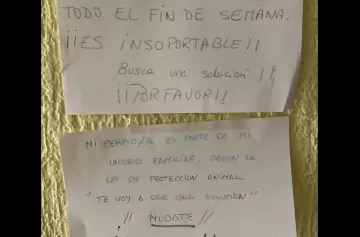 TODO EL FIN DE SEMANA.
¡¡ES INSOPORTABLE!!
Busca una solución !!
¡¡POR FAVOR!!
MI PERRO/A ES PARTE DE MI
UNIDAD FAMILIAR, SEGÚN LA
LEY DE PROTECCION ANIMAL
"TE VOY A DAR UNA SOLUCION"
!! MUDATE !!